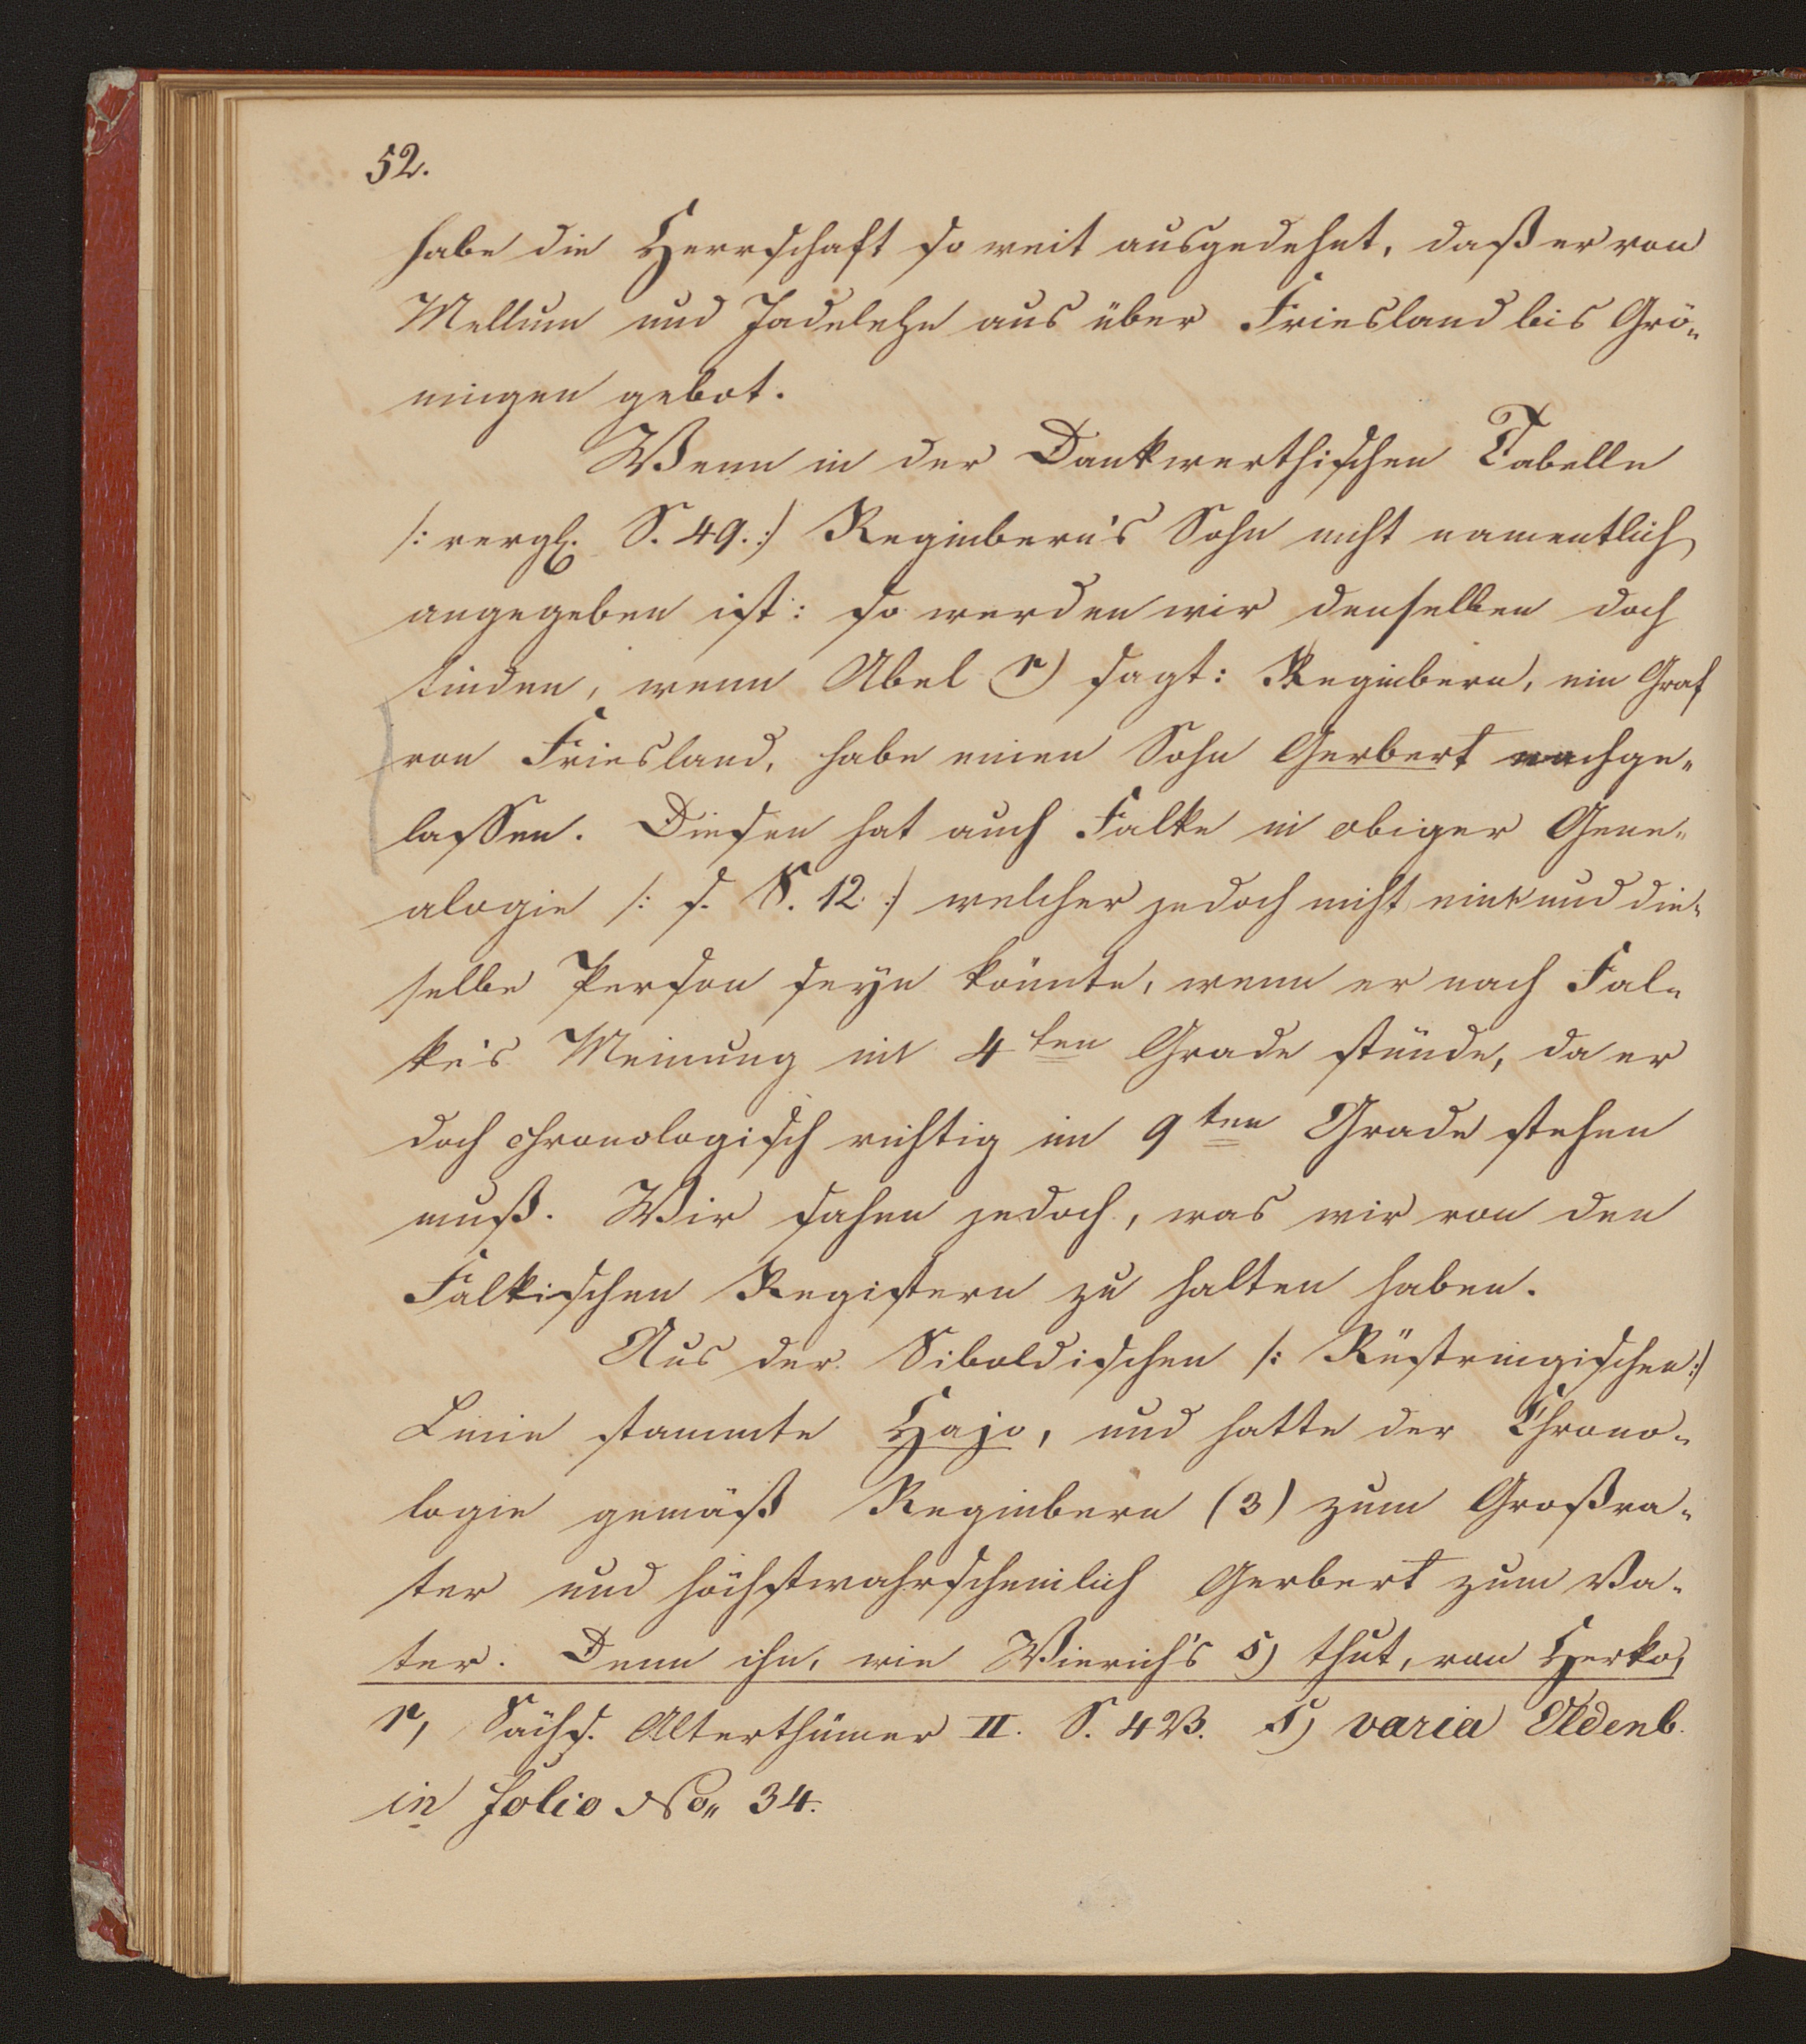 52.
habe die Herrschaft so weit ausgedehnt, daß er von
Mellum und Jadelehe aus über Friesland bis Grö-
ningen gebot.
Wenn in der Dankwerthischen Tabelle
/: vergl. S. 49. :/ Reginbern's Sohn nicht namentlich
angegeben ist: so werden wir denselben doch
finden, wenn Abel r) sagt: Reginbern, ein Graf
von Friesland, habe einen Sohn Gerbert nachge-
lassen. Diesen hat auch Falke in obiger Gene-
alogie /: s. S. 12 :/ welcher jedoch nicht ein und die-
selbe Person seyn könnte, wenn er nach Fal-
ke's Meinung im 4ten Grade stünde, da er
doch chronologisch richtig im 9ten Grade stehen
muß. Wir sahen jedoch, was wir von den
Falkischen Registern zu halten haben.
Aus der Siboldischen /: Rüstringischen :/
Linie stammte Hajo, und hatte der Chrono-
logie gemäß Reginbern (3) zum Großva-
ter und höchstwahrscheinlich Gerbert zum Va-
ter. Denn ihn, wie Winrich's s) thut, von Herko,
r, Sächs. Alterthümer II. S. 423. s) varia Oldenb.
in folio No. 34.